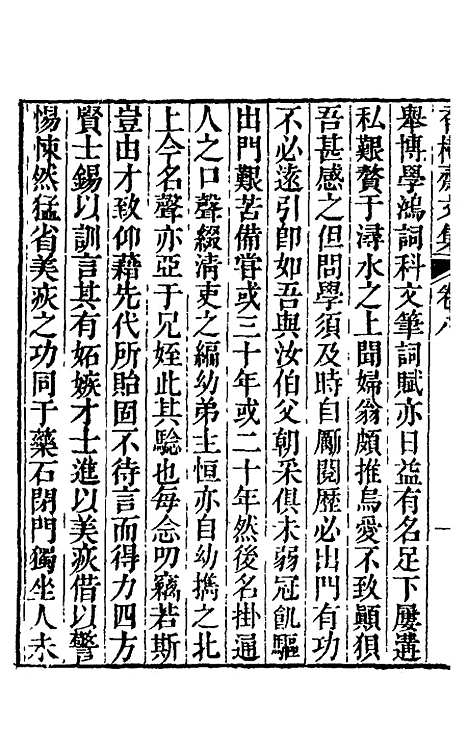 香樹齋文集 卷八
舉博學鴻詞科文筆詞賦亦日益有名足下屢遘
私艱贅于潯水之上聞婦翁頗推烏愛不致顚狽
吾甚感之但問學須及時自勵閱歷必出門有功
不必遠引卽如吾與汝伯父朝采俱未弱冠飢驅
出門艱苦備嘗或三十年或二十年然後名掛通
人之口聲綴淸吏之編幼弟主恒亦自幼攜之北
上今名聲亦亞于兄姪此其騐也每念叨竊若斯
豈由才致仰藉先代所貽固不待言而得力四方
賢士錫以訓言其有妬嫉才士進以美疢借以警
惕悚然猛省美疢之功同于藥石閉門獨坐人未